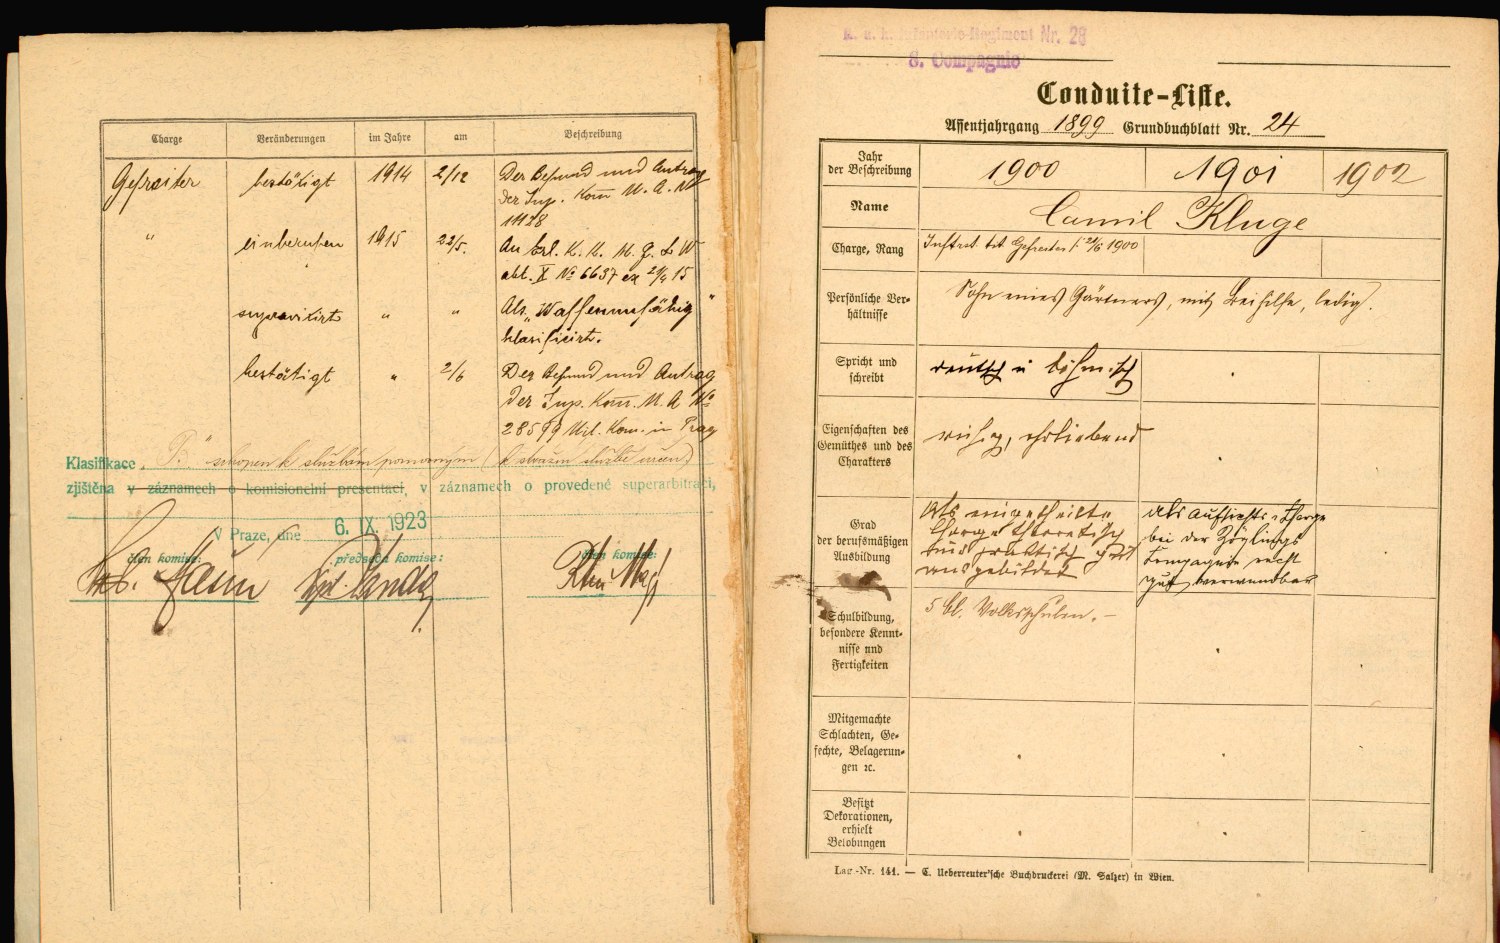 Charge Veränderungen im Jahre am Beschreibung
Gefreiter bestätigt 1914 2/12 Der Befund und Antrag
der Sup. Kom M. A. No
11128
" einberufen 1915 22/5. An Erl. K. K. M. f. L V
abt. X No 6637 ex 21/4 15
superarbitrirt " " Als "Waffenunfähig"
klassificirt.
bestätigt " 2/6 Der Befund und Antrag
der Sup. Kom. M. A No
28599 Mil. Kom. in Prag
Klasifikace „B" schopen k službám pomocným
zjištěna v záznamech o komisionelní presentaci, v záznamech o provedené superarbitraci,
V Praze, dne 6. IX. 1923
člen komise: předseda komise: člen komise:
k. u. k. Infanterie-Regiment Nr. 28
8. Compagnie
Conduite-Liste.
Assentjahrgang 1899 Grundbuchblatt Nr. 24
Jahr
der Beschreibung 1900 1901 1902
Name Camil Kluge
Charge, Rang Infant. tit Gefreiter 1900
Persönliche Ver-
hältnisse
Sohn eines Gärtners, mit Beihilfe, ledig.
Spricht und
schreibt
deutsch u böhmisch
Eigenschaften des
Gemüthes und des
Charakters
ruhig, ehrliebend
Grad
der berufsmäßigen
Ausbildung
Als eingetheilte
Charge theoretisch
und praktisch gut
ausgebildet
Als Aufsichts-Charge
bei der Zöglings
Compagnie recht
gut verwendbar
Schulbildung,
besondere Kennt-
nisse und
Fertigkeiten
5 Cl. Volksschulen. –
Mitgemachte
Schlachten, Ge-
fechte, Belagerun-
gen ec.
Besitzt
Dekorationen,
erhielt
Belobungen
Lag.-Nr. 141. — C. Ueberreuter'sche Buchdruckerei (M. Salzer) in Wien.